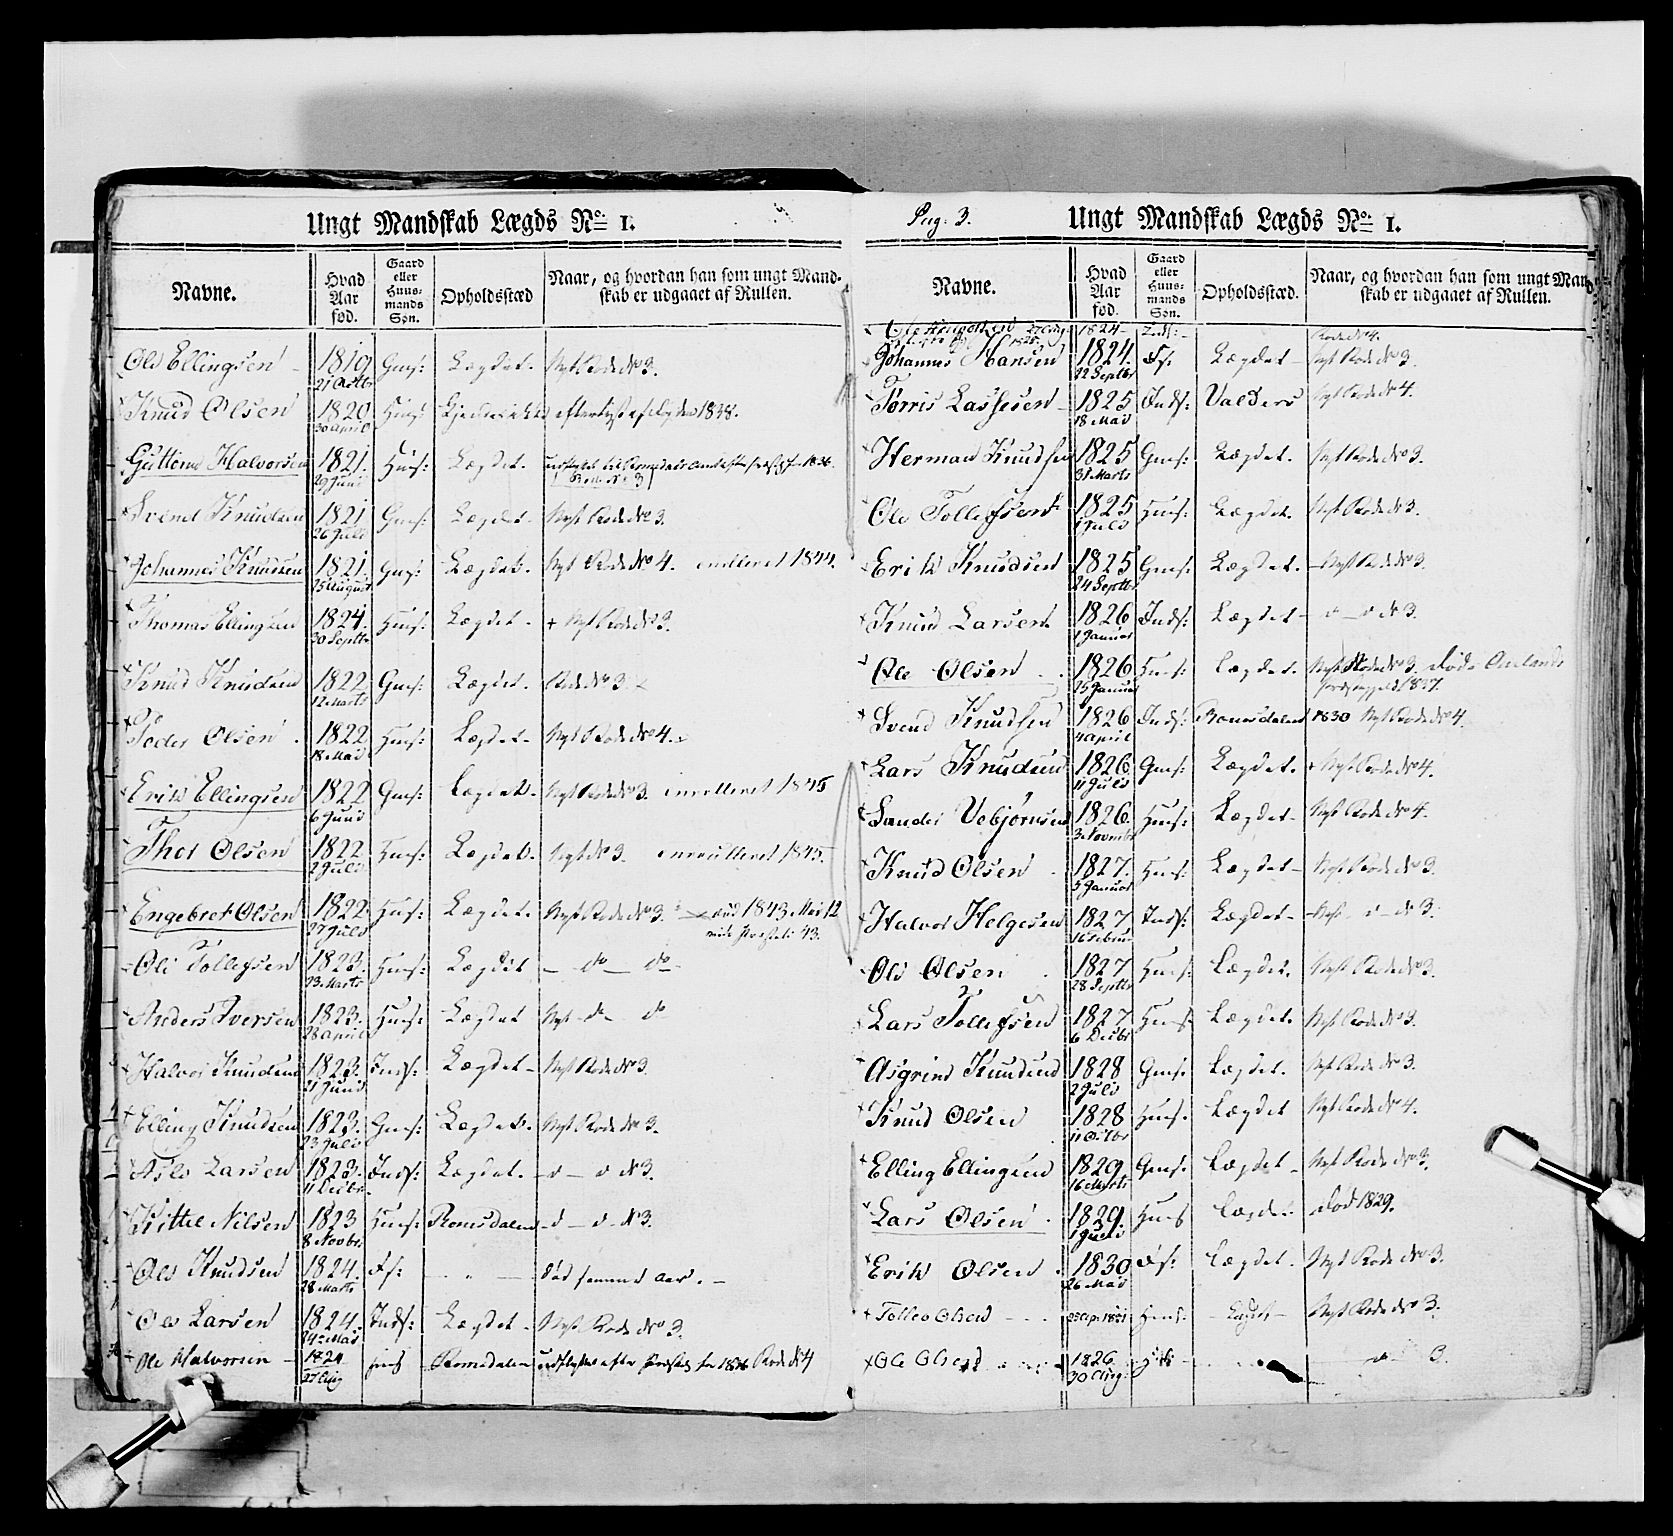 Ungt Mandskab Lægds No. 1.
Navne.
Hvad Aar fød.
Gaard eller Huus-mands Søn.
Opholdsstæd
Naar, og hvordan han som ungt Mand-
skab er udgaaet af Rullen.
Ole Ellingsen 1819 Gms: Lægdet. Nyt Rode No 3.
21 Octbr
Knud Olsen 1820 Hms:
30 April
Guttorm Halvorsen 1821. Hms: Lægdet.
29 Juni Rode No 3
Svend Knudsen 1821 Gms: Lægdet. Nyt Rode No 3.
26 Juli
Johannes Knudsen 1821. Gms: Lægdet. Nyt Rode No 4. enrolleret 1844.
25 August
Thomas Ellingsen 1821. Hms: Lægdet. + Nyt Rode No 3.
30 Septbr
Knud Knudsen 1822 Gms: Lægdet. Rode No 3.
12 Marts
Peder Olsen 1822 Hms: Lægdet. Nyt Rode No 4.
18 Mai
Erik Ellingsen 1822 Gms: Lægdet. Nyt Rode No 3. enrolleret 1845
6 Juni
Thor Olsen 1822 Hms: Lægdet. Nyt No 3. enroulleret 1845.
2 Juli
Engebret Olsen 1822 Hms: Lægdet. Nyt Rode No 3. død 1843 Mai 12
27 Juli
Ole Tollefsen 1823. Hms: Lægdet - do - do
23 Marts
Anders Iversen 1823. Hms: Lægdet Nyt do do
28 April
Halvor Knudsen 1823. Inds: Lægdet - Nyt Rode No 3.
21 Juni
Elling Knudsen 1823. Gms: Lægdet. Nyt Rode No 3.
23 Juli
Asle Larsen 1823. Inds: Lægdet. - d - o No 3.
11 Decbr.
Kittel Nilsen 1823 Hms: Romsdalen - d - o - No 3.
8 Novbr.
Ole Knudsen 1824. Fs: død samme Aar. -
28 Marts
Ole Larsen 1824. Inds: Lægdet. Nyt Rode No 3.
14 Mai
Ole Halvorsen - 1824 Romsdalen Rode No 4
27 Aug
Pag: 3. Ungt Mandskab Lægds No. 1.
Navne.
Hvad Aar fød.
Gaard eller Huus-mands Søn.
Opholdsstæd.
Naar, og hvordan han som ungt Mand-
skab er udgaaet af Rullen.
1824 Inds: Rode No 4.
Johannes Hansen 1824. Fs: Lægdet - Nyt Rode No 3.
22 Septbr
Torris Lassesen 1825 Inds: Valders Nyt Rode No 4.
18 Mai
Herman Knudsen 1825 Gms: Lægdet. Nyt Rode No 3.
31 Marts
Ole Tollefsen 1825 Hms: Lægdet. Nyt Rode No 3.
1 Juli
Erik Knudsen 1825 Gms: Lægdet. - Nyt Rode No 3.
24 Septbr
Knud Larsen 1826 Inds: Lægdet - o - o No 3.
1 Januar
Ole Olsen 1826 Hms: Lægdet. Nyt Rode No 3.
25 Januar 1837.
Svend Knudsen 1826 Inds: Romsdalen 1830 Nyt Rode No 4.
4 April
Lars Knudsen 1826 Gms: Lægdet. Nyt Rode No 4.
11 Juli
Sander Vebjørnsen 1826. Hms: Lægdet - Nyt Rode No 4.
3 Novembr
Knud Olsen 1827. Hms: Lægdet - Nyt Rode No 3.
5 Januar
Halvor Helgesen 1827 Inds: Lægdet - Nyt - o - No 3.
16 Februar
Ole Olsen 1827 Hms: Lægdet. Nyt Rode No 3.
28 Septbr
Lars Tollefsen 1827 Hms: Lægdet. Nyt Rode No 3.
6 Decbr
Asgrim Knudsen 1828 Gms: Lægdet. Nyt Rode No 3.
2 Juli
Knud Olsen 1828 Hms. Lægdet Nyt Rode No 4.
11 Octbr
Elling Ellingsen 1829 Gms: Lægdet - Nyt Rode No 3.
16 Marts
Lars Olsen 1829. Hms Lægdet død 1829.
1 Juli
Erik Olsen 1830 Fs: Lægdet. Nyt Rode No 3.
26 Mai
Tollev Olsen 1821 Hms: Nyt Rode No 3.
Ole Olsen 1826 3.
30 Aug: